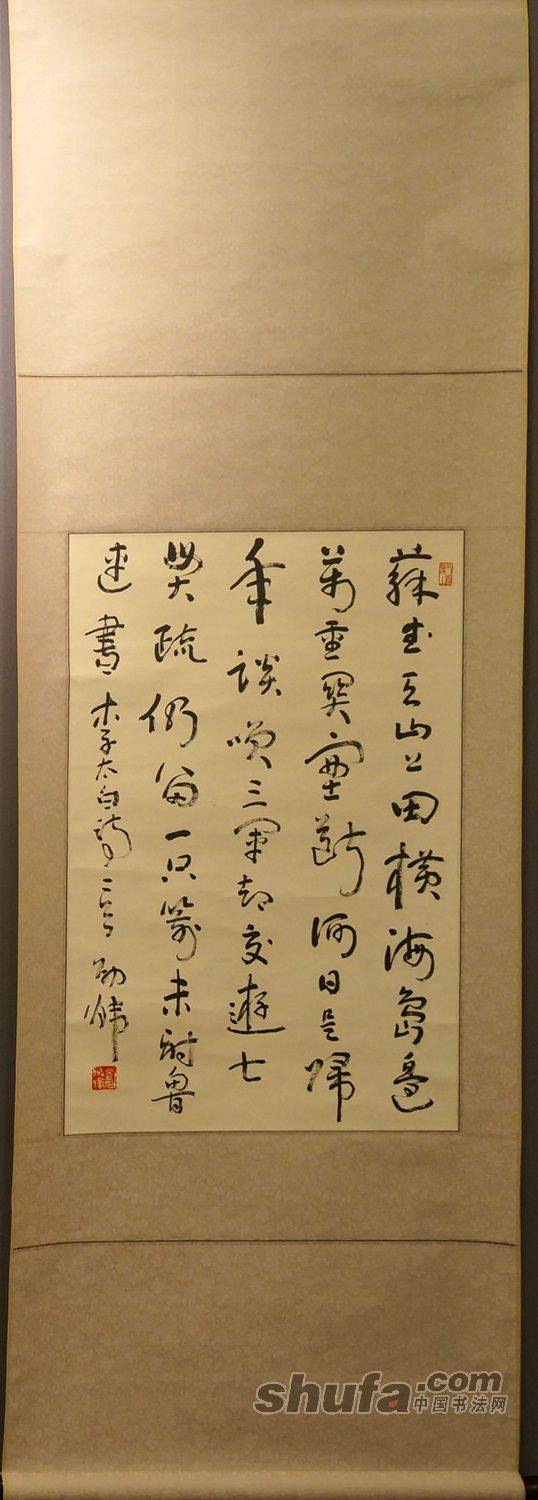 蘇武天山上田橫海島邊
萬重關塞斷何日是歸
年談咲三軍却交遊七
貴疏仍留一只箭未射魯
連書 李太白詩二首
shufa.com
中国书法网